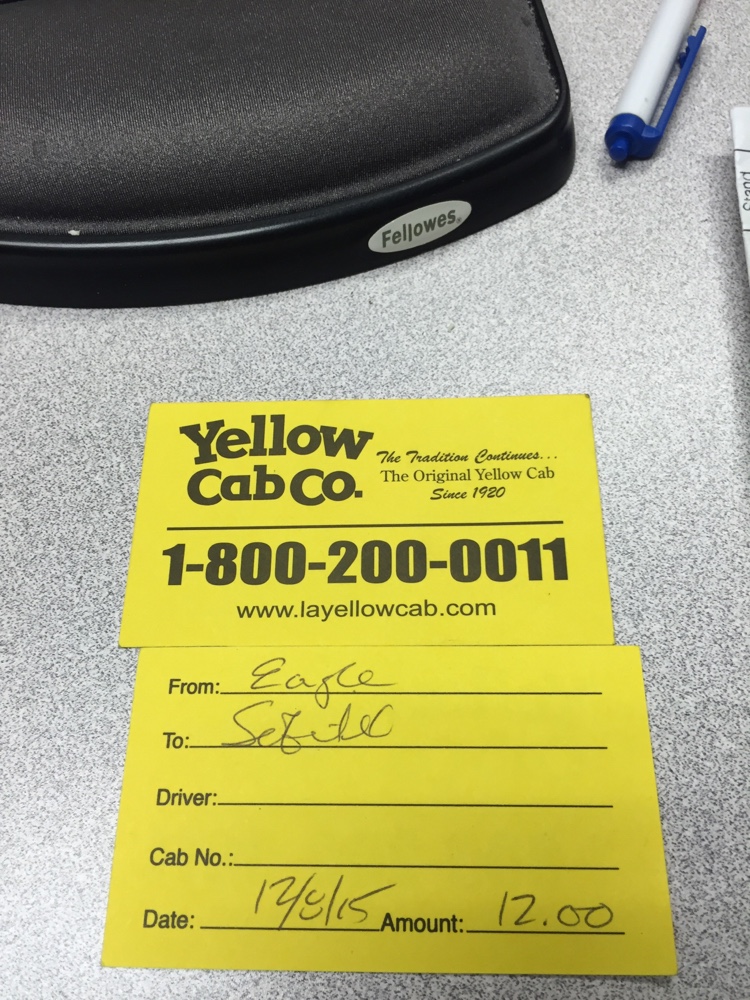 Fellowes
Stand
Yellow
Cab Co.
The Tradition Continues...
The Original Yellow Cab
Since 1920
1-800-200-0011
www.layellowcab.com
From: Eagle
To:
Driver:
Cab No.:
Date: 12/8/15 Amount: 12.00